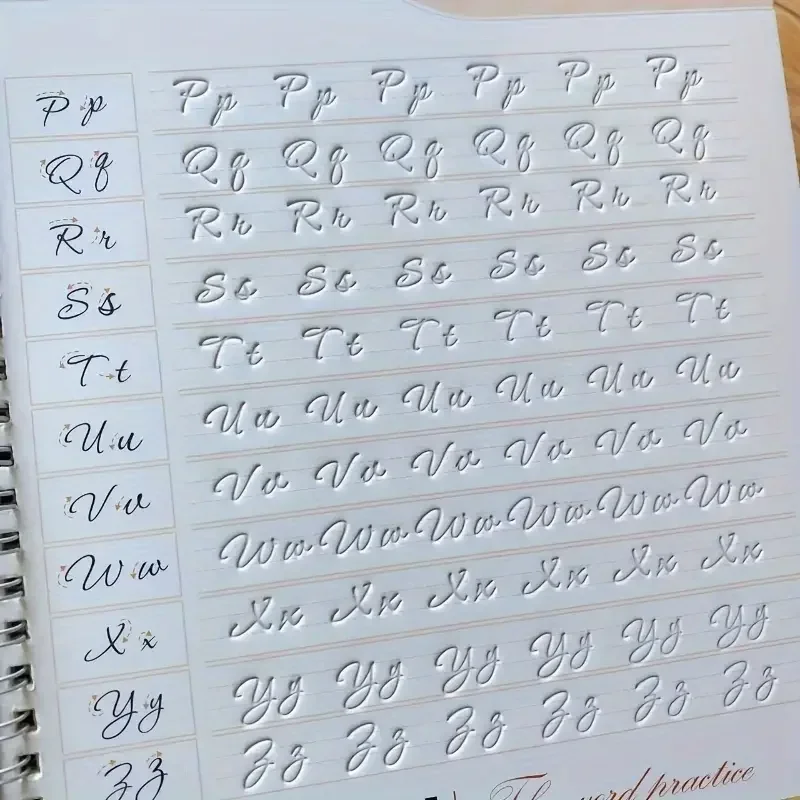 P p P p P p P p P p P p P p
Q q Q q Q q Q q Q q Q q Q q
R r R r R r R r R r R r R r
S s S s S s S s S s S s S s
T t T t T t T t T t T t T t
U u U u U u U u U u U u U u
V v V v V v V v V v V v V v
W w W w W w W w W w W w W w
X x X x X x X x X x X x X x
Y y Y y Y y Y y Y y Y y Y y
Z z Z z Z z Z z Z z Z z Z z
The word practice